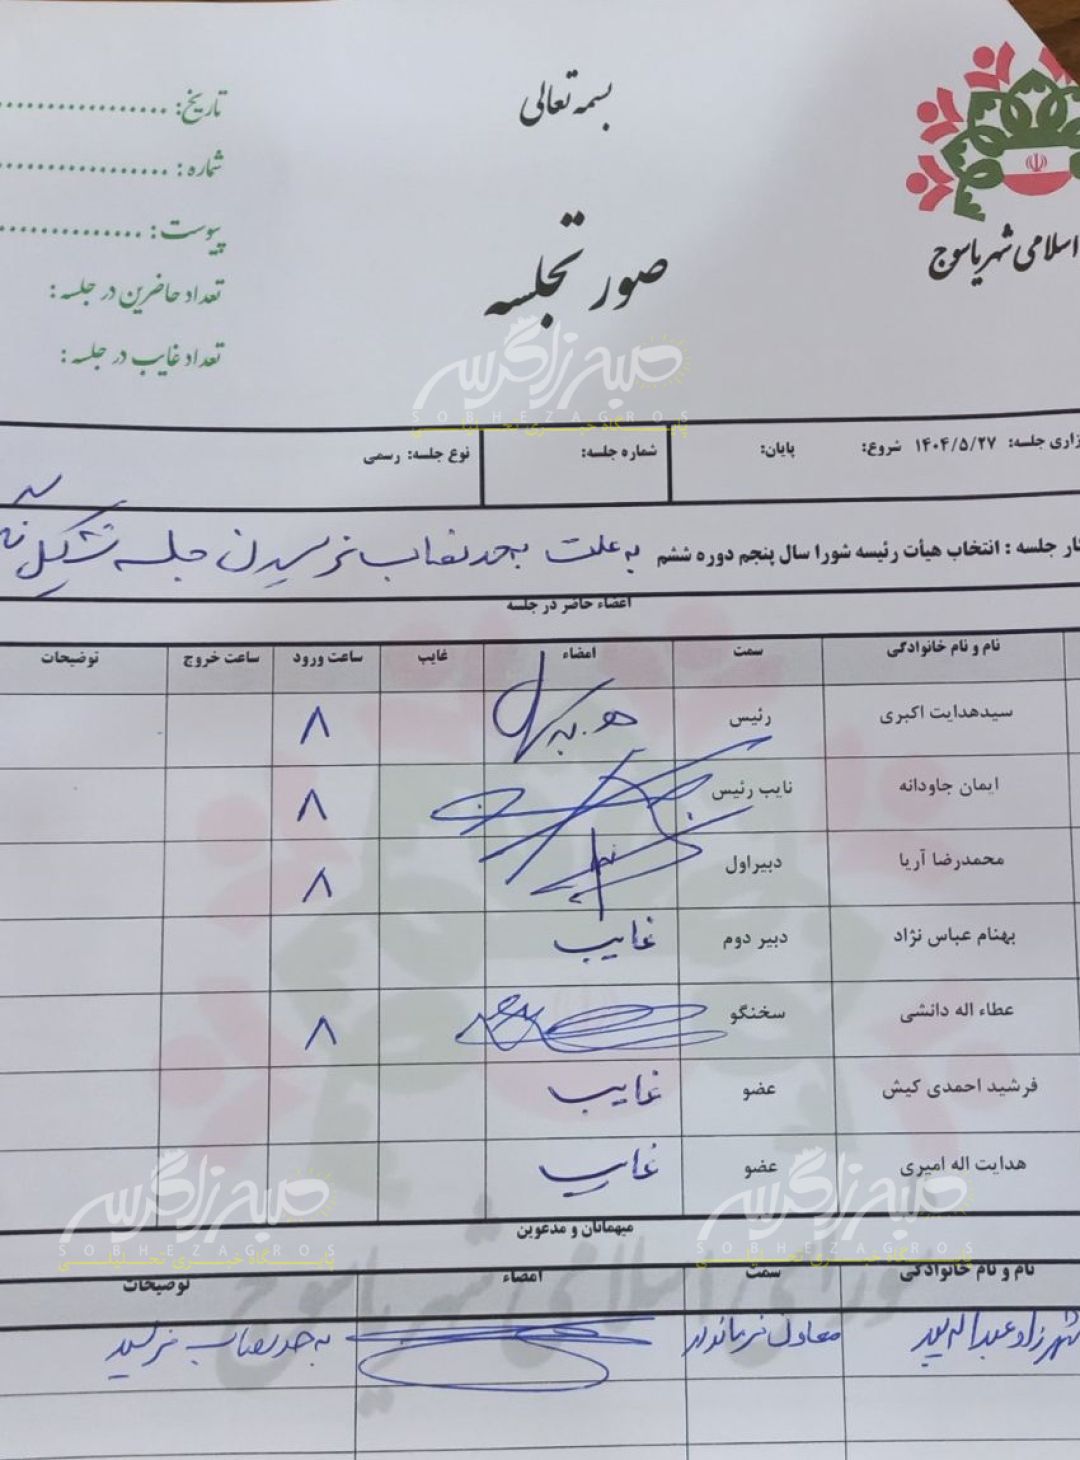 بسمه تعالی
تاریخ: ..................
شماره: ..................
پیوست: ..................
تعداد حاضرین در جلسه:
تعداد غایب در جلسه:
اسلامی شهر یاسوج
صورتجلسه
صبح زاگرس
SOBHEZAGROS
پایگاه خبری تحلیلی
زاری جلسه: ۱۴۰۴/۵/۲۷ شروع: پایان: شماره جلسه: نوع جلسه: رسمی
کار جلسه : انتخاب هیأت رئیسه شورا سال پنجم دوره ششم به علت به حد نصاب نرسیدن جلسه تشکیل
اعضاء حاضر در جلسه
نام و نام خانوادگی سمت امضاء غایب ساعت ورود ساعت خروج توضیحات
سیدهدایت اکبری رئیس ۸
ایمان جاودانه نایب رئیس ۸
محمدرضا آریا دبیراول ۸
بهنام عباس نژاد دبیر دوم غایب
عطاء اله دانشی سخنگو ۸
فرشید احمدی کیش عضو غایب
هدایت اله امیری عضو غایب
صبح زاگرس صبح زاگرس
SOBHEZAGROS SOBHEZAGROS
پایگاه خبری تحلیلی پایگاه خبری تحلیلی
میهمانان و مدعوین
نام و نام خانوادگی سمت امضاء توضیحات
شهرزاد عبداله پور معاون فرماندار به حد نصاب نرسید
شورای اسلامی شهر یاسوج